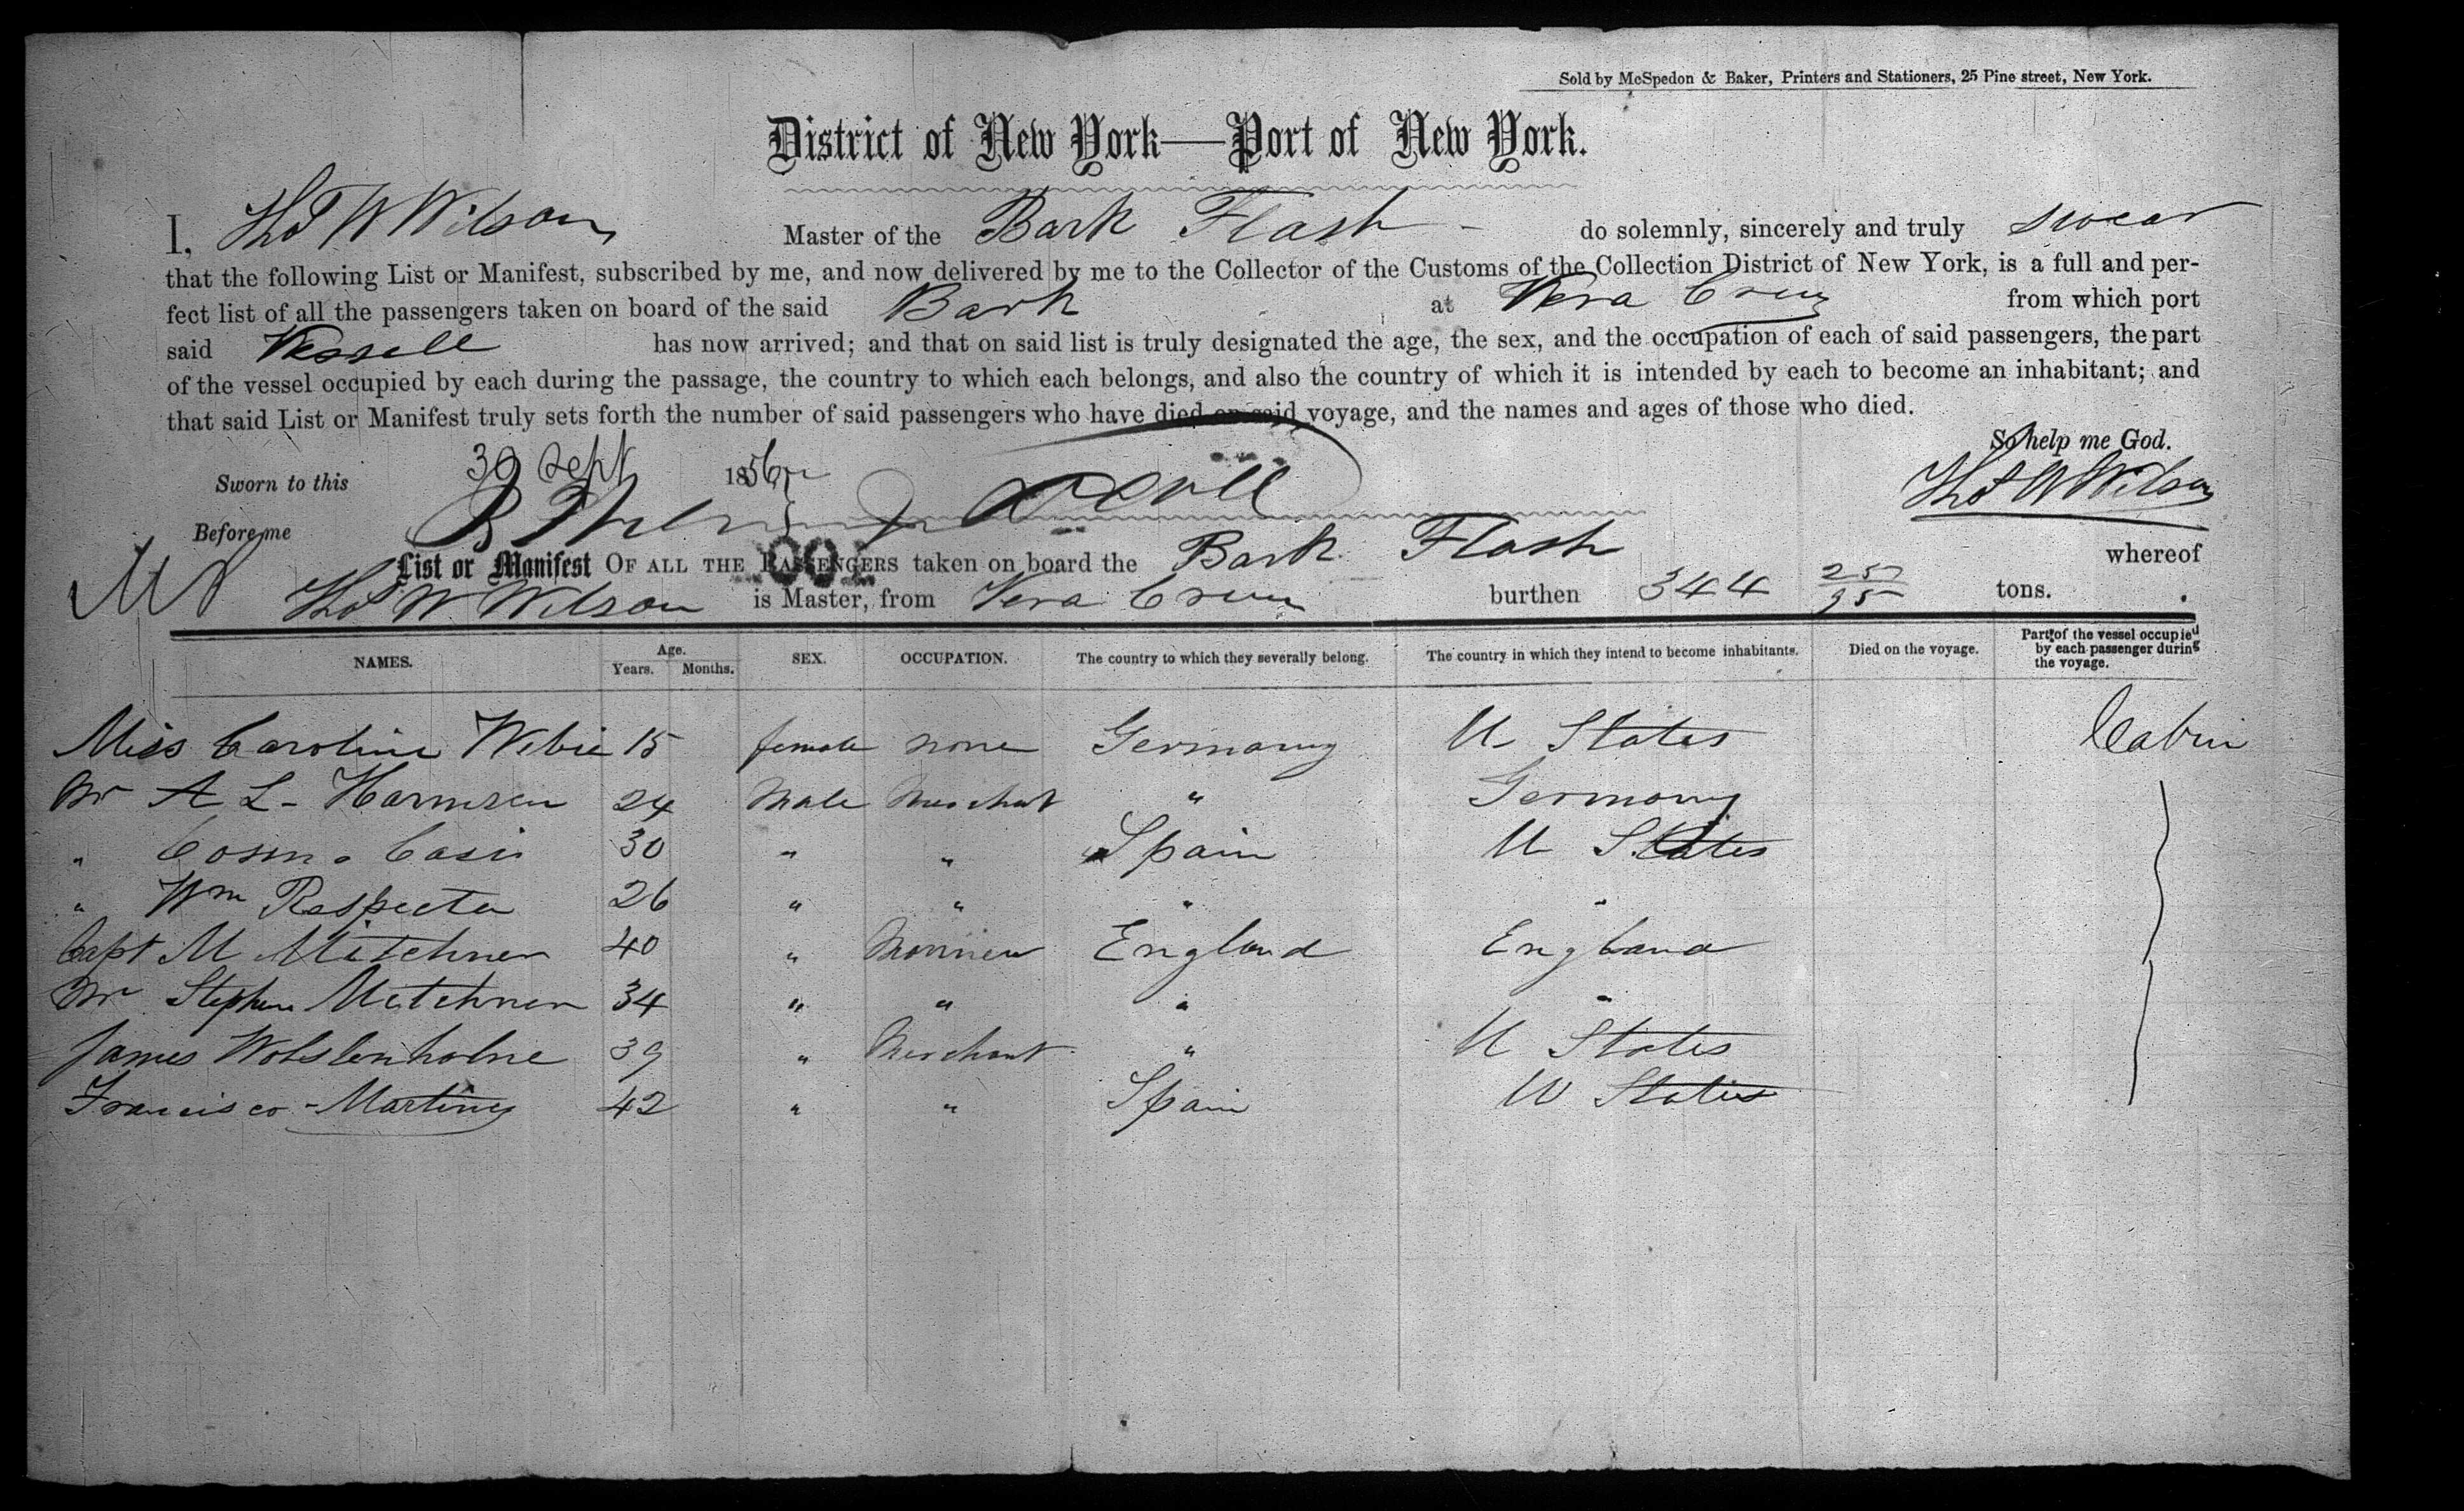 Sold by McSpedon & Baker, Printers and Stationers, 25 Pine street, New York.
District of New York—Port of New York.
I, Thos W Wilson Master of the Bark Flash do solemnly, sincerely and truly swear
that the following List or Manifest, subscribed by me, and now delivered by me to the Collector of the Customs of the Collection District of New York, is a full and per-
fect list of all the passengers taken on board of the said Bark at Vera Cruz from which port
said Vessell has now arrived; and that on said list is truly designated the age, the sex, and the occupation of each of said passengers, the part
of the vessel occupied by each during the passage, the country to which each belongs, and also the country of which it is intended by each to become an inhabitant; and
that said List or Manifest truly sets forth the number of said passengers who have died on said voyage, and the names and ages of those who died.
So help me God.
Sworn to this 30 Sept 1856
Thos W Wilson
Before me
List or Manifest OF ALL THE PASSENGERS taken on board the Bark Flash whereof
Thos W Wilson is Master, from Vera Cruz burthen 344 25/95 tons.
NAMES. Age. Years. Months. SEX. OCCUPATION. The country to which they severally belong. The country in which they intend to become inhabitants. Died on the voyage. Part of the vessel occupied by each passenger during the voyage.
Miss Caroline Webie 15 female none Germany U States Cabin
Mr A L - Harmsen 24 Male Merchant " Germany
" Cosmo Casis 30 " " Spain U States
" Wm Respecta 26 " " " "
Capt M Mitchner 40 " Marinier England England
Mr Stephen Mitchner 34 " " " "
James Wolslenholne 39 " Merchant " U States
Francisco - Martinez 42 " " Spain U States